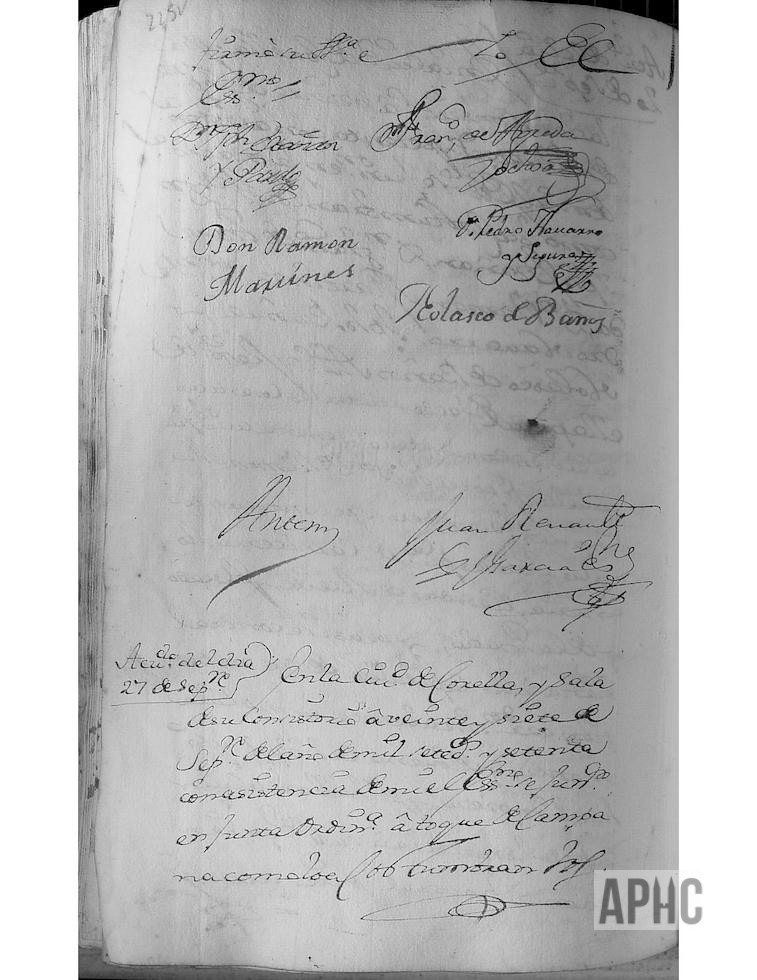 225v
firmè yo el
Essno
Dn Jph
y Pardo
Franco de Arveda
y ochoa
Dn Pedro Navarro
y Segura
Don Ramon
Martines
Nolasco de Baños
Antemi
Juan Renault
y Garcia es no
Acudo del dia
27 de Sepre
En la Ciud de Corella, y Sala
de su Consistorio â veinte y siete de
Sepre del año de mil setecs y setenta
con asistencia de mi el Essno se juntn
en Junta Ordina â toque de Campa
na como lo a costumbran los
APHC